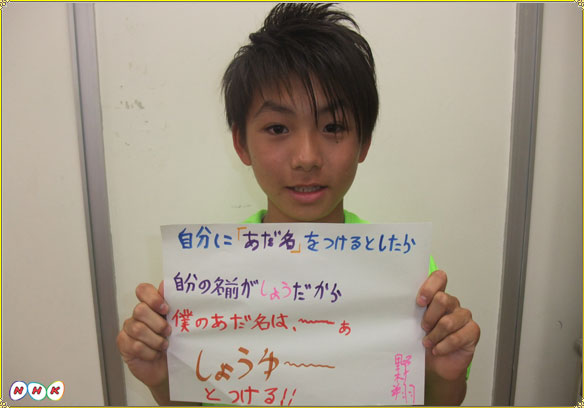 自分に「あだ名」をつけるとしたら
自分の名前がしょうだから
僕のあだ名は、〜〜ぁ
しょうゆ〜〜
とつける!!
野村
NHK